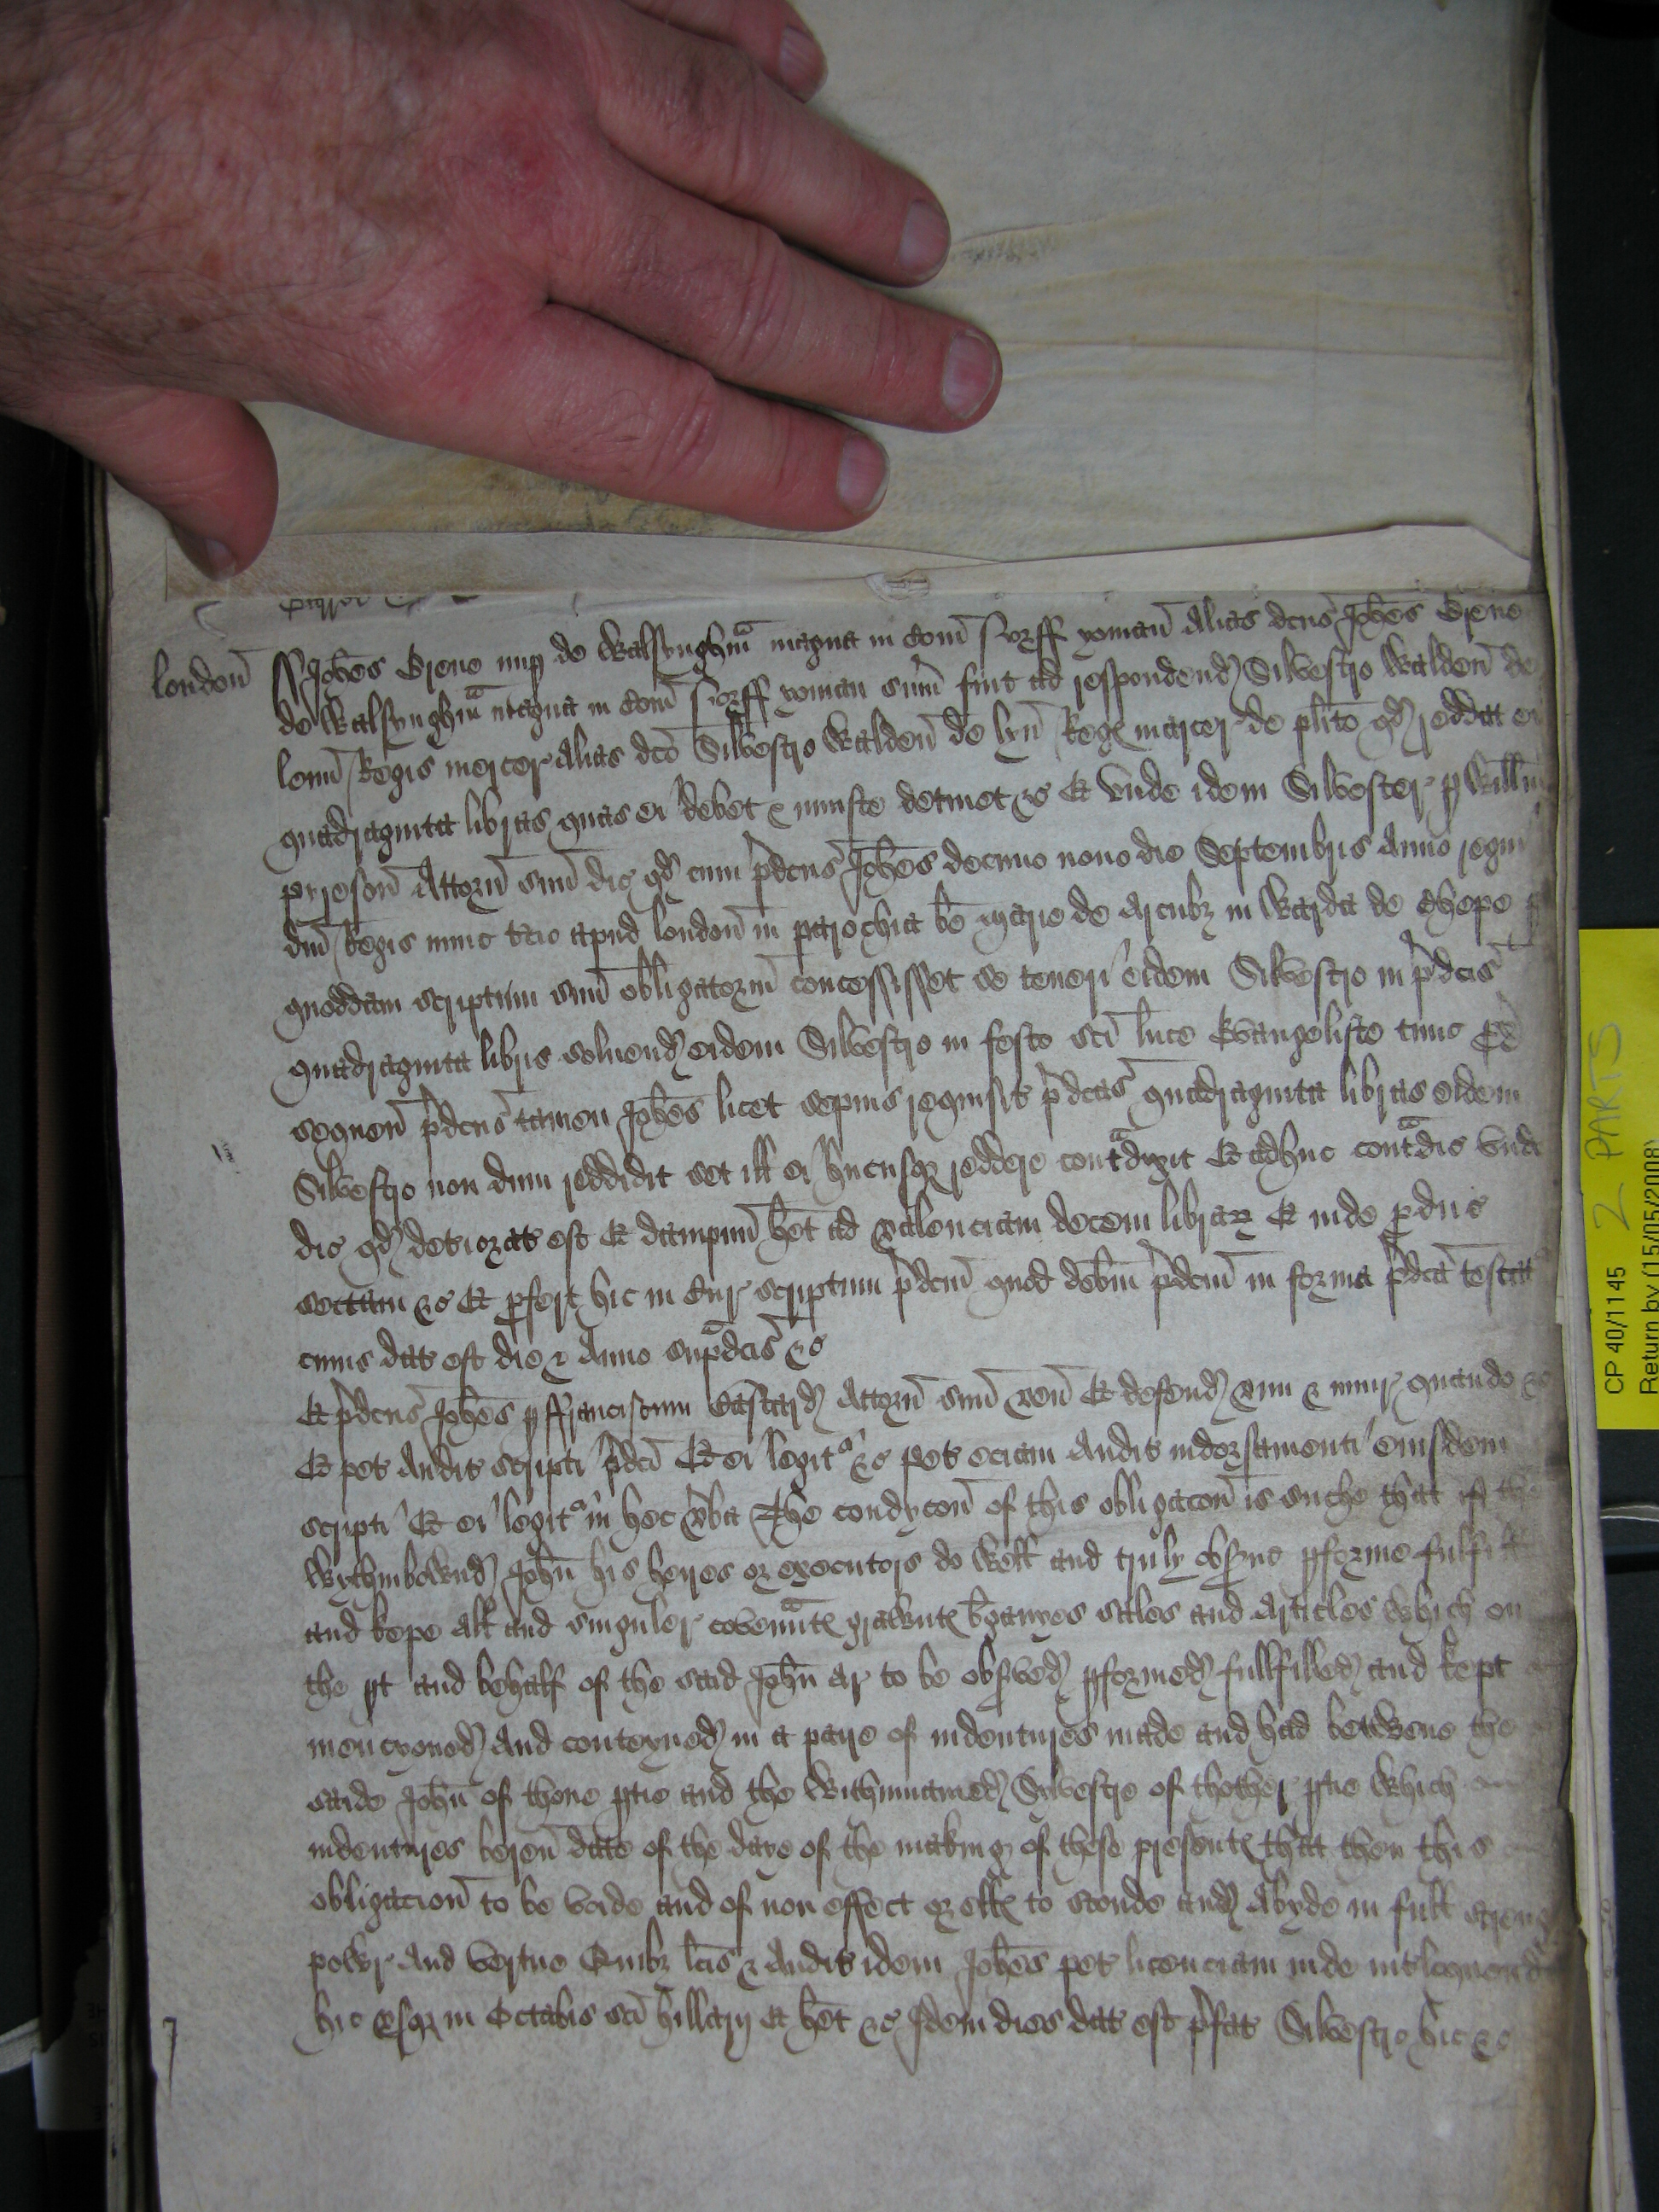 londoñ
ss Joħes Grene nup de Walsynghm̃ magna in Com̃ Norff yoman̄ Alias dcūs Joħes Grene
de Walsynghm̃ magna in Com̃ Norff yoman sum̃ fuit ad respondend Silvestro Waldeñ de
lenn̄ Regis mercer Alias dcō Silvestro Waldeñ de lyn̄ Reg mercer de plito qd reddat ei
quadraginta libras quas ei debet & iniuste detinet &c Et unde idem Silvester p Willm̃
priesoñ Attorñ suū dic qd cum pdcūs Joħes decimo nono die Septembris Anno regni
dnī Regis nunc tcio apud londoñ in parochia be marie de Arcubz in Warda de Chepe p
quoddam scriptum suū obligatoriū concessisset se teneri eidem Silvestro in pdcīs
quadraginta libris soluend eidem Silvestro in festo scī luce Evangeliste tunc px
sequeñ pdcūs tamen Joħes licet sepius requisit pdcās quadraginta libras eidem
Silvestro non dum reddidit set ill ei hucusqz reddere contadixit Et adhuc contadic unde
dic qd deteriorat est Et dampnū het ad valenciam decem librar Et inde pduc
sectam &c Et pfert hic in Cur scriptum pdcm̄ quod debm̄ pdcm̄ in forma pdcā testat
cuius dat est die & Anno supadcīs &c
Et pdcūs Joħes p ffranciscum Castard Attorñ suū ven̄ Et defend vim & iniur quando &c
Et pet Audit scripti pdcī Et ei legit &c pet eciam Audit indorsamenti eiusdem
scripti Et ei legit in hec vba The condycoñ of this obligacoñ is suche that if the
Wythinbownd Joħn his heyres or executors do well and truly obsrue pforme fulfill
and kepe all and singuler covenāt grawnt bgaynes sales and Articles which on
the pt and behalf of the said Joħn ar to be obsrved pformed fullfilled and kept
mencyoned And conteyned in a payre of indentures made and had betwene the
saide Joħn of thone ptie and the Withinnamed Silvestre of thother ptie Which
indentures beren̄ date of the daye of the making of these present that then this
obligacion̄ to be voide and of non effect or ell to stonde and Abyde in full streng
powr And vertue Quibz lcīs & Audit idem Joħes pet licenciam inde intloquend
hic usqz in Octabis scī hillarij Et het &c Idem dies dat est pfat Silvestro hic &c
CP 40/1145
2 PARTS
Return by (15/05/2008)